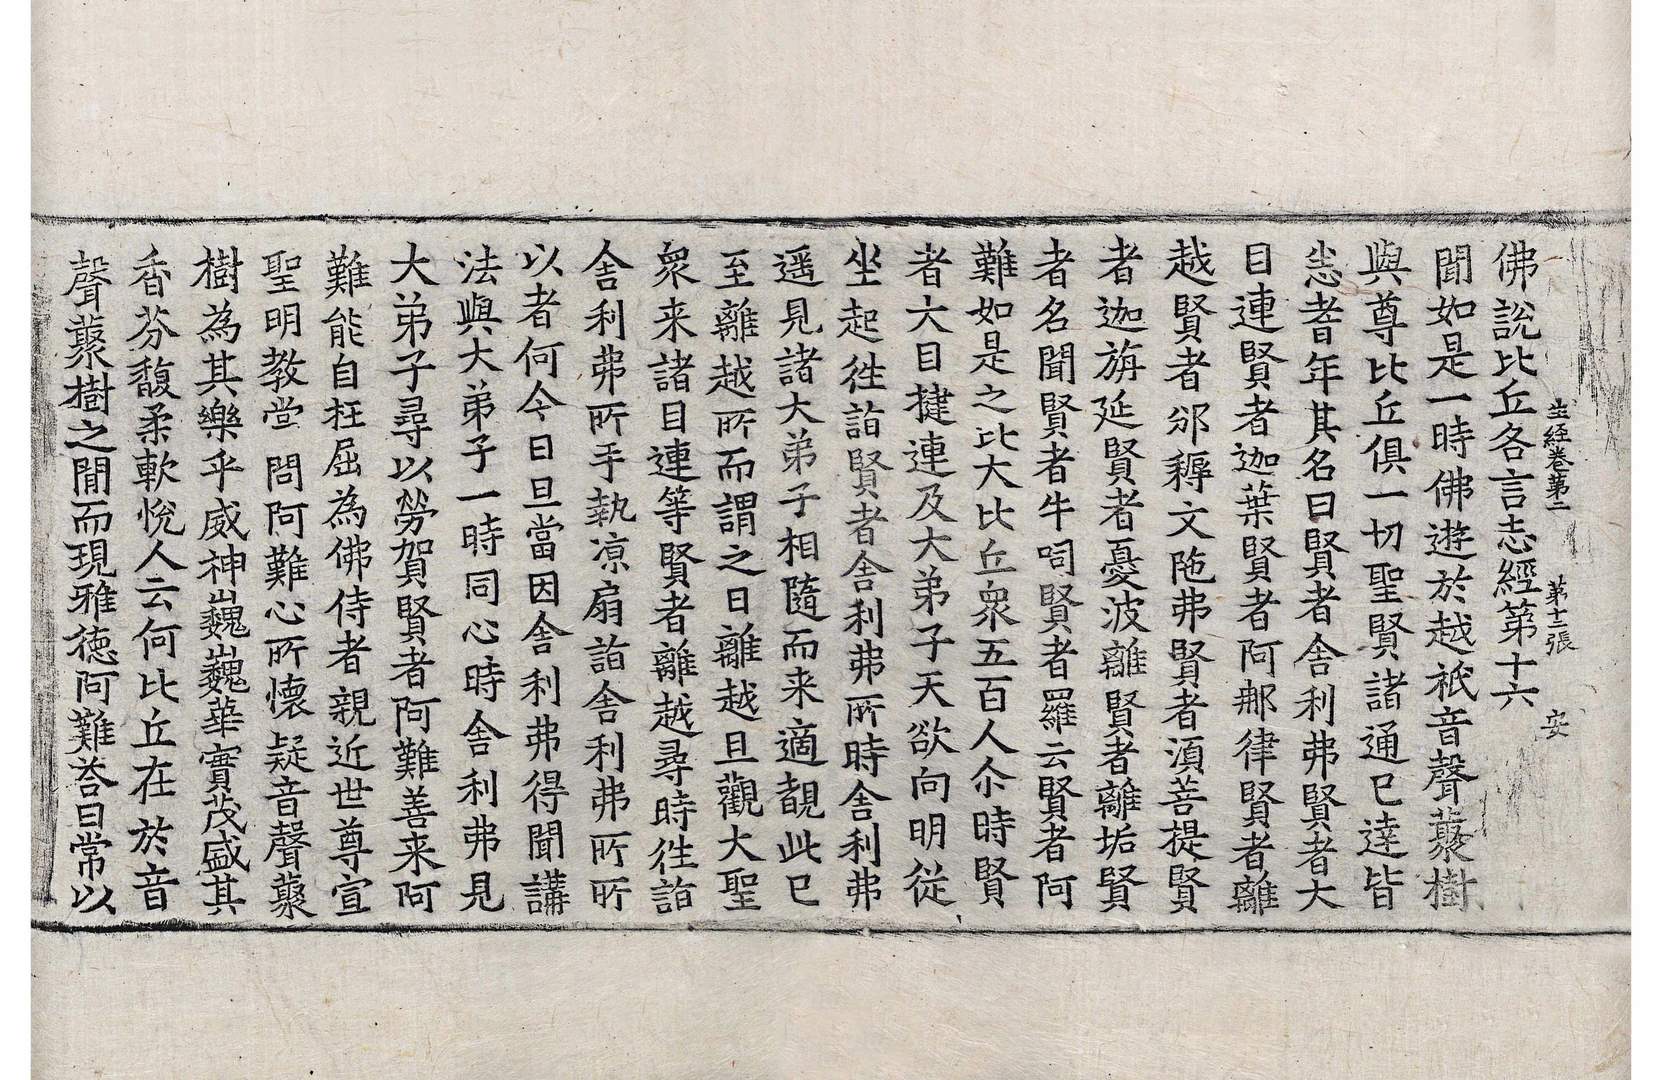 生経卷第二 第十二張 安
佛說比丘各言志經第十六
聞如是一時佛遊於越衹音聲藂樹
與尊比丘俱一切聖賢諸通已達皆
悉耆年其名曰賢者舎利弗賢者大
目連賢者迦葉賢者阿那律賢者離
越賢者邠耨文陁弗賢者湏菩提賢
者迦旃延賢者憂波離賢者離垢賢
者名聞賢者牛呞賢者羅云賢者阿
難如是之比大比丘衆五百人尒時賢
者大目揵連及大弟子天欲向明従
坐起徃詣賢者舎利弗所時舎利弗
遥見諸大弟子相隨而来適覩此已
至離越所而謂之曰離越且觀大聖
衆来諸目連等賢者離越尋時徃詣
舎利弗所手執凉扇詣舎利弗所所
以者何今日旦當因舎利弗得聞講
法與大弟子一時同心時舎利弗見
大弟子尋以勞賀賢者阿難善来阿
難能自枉屈為佛侍者親近世尊宣
聖明教堂問阿難心所懐疑音聲藂
樹為其樂乎威神巍巍華實茂盛其
香芬馥柔軟悅人云何比丘在於音
聲藂樹之閒而現雅徳阿難荅曰常以